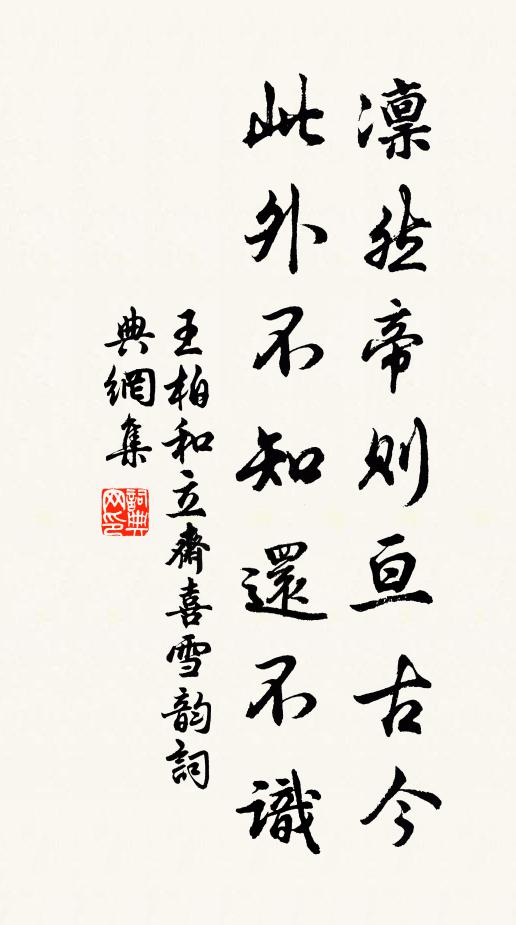 凛然帝则亘古今
此外不知還不識
王柏和立齋喜雪韵詞
典網集
詞典網印